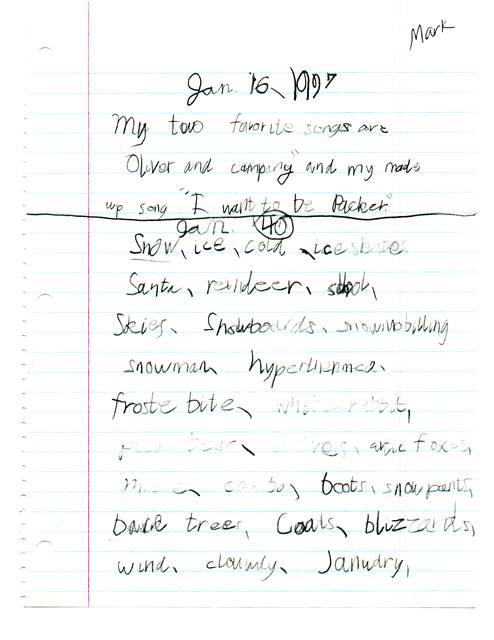 Mark
Jan. 16, 1997
My two favorite songs are
Oliver and company" and my made
up song "I want to be Packer."
Jan. 40
Snow, ice, cold, ice skates
Santa, reindeer,
Skies, Snowboards, snowmobilling
snowman, hyperthermea,
froste bite, white rabbit,
bear, wolves, artic foxes,
boots, snow pants,
trees, Coats, blizzards,
wind, January,